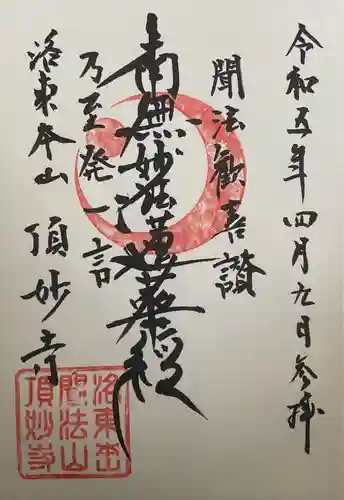 令和五年四月九日参拝
聞法歓喜讃
南無妙法蓮華経
乃至発一言
洛東本山 頂妙寺
洛東本
聞法山
頂妙寺